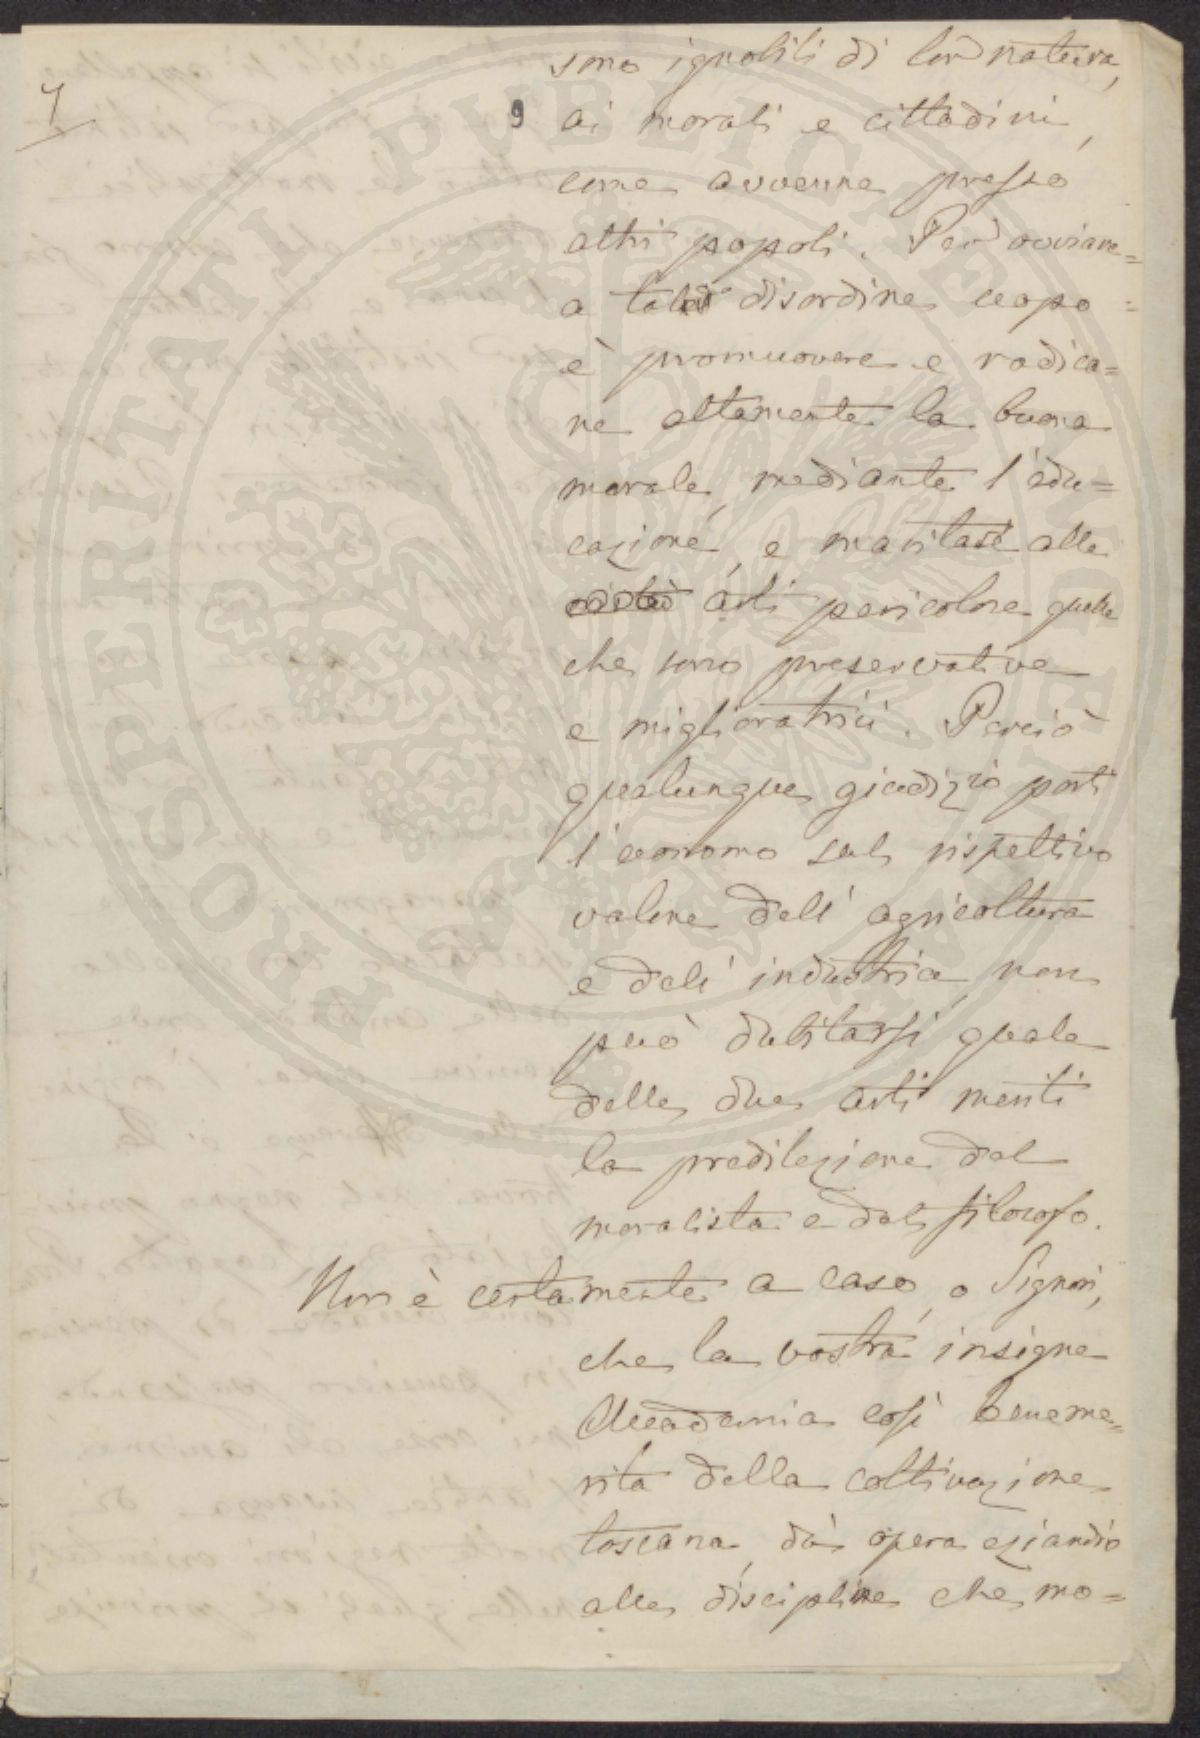 7
sono ignobili di lor natura,
9 ai morali e cittadini,
come avvenne presso
altri popoli. Per ovviare=
a tale disordine uopo=
è promuovere e radica=
re altamente la buona
morale, mediante l'edu=
cazione, e maritare alle
arti pericolose quelle
che sono preservative
e miglioratrici. Perciò
qualunque giudizio porti
l'economo sul rispettivo
valore dell'agricoltura
e dell'industria, non
può dubitarsi quale
delle due arti meriti
la predilezione del
moralista e del filosofo.
Non è certamente a caso, o Signori,
che la vostra insigne
Accademia così beneme=
rita della coltivazione
toscana, dà opera eziandio
alle discipline che mo=
PROSPERITATI PUBLICAE